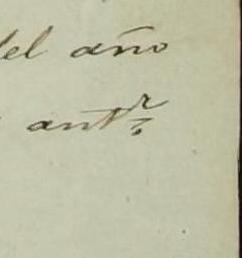 del año
antr.